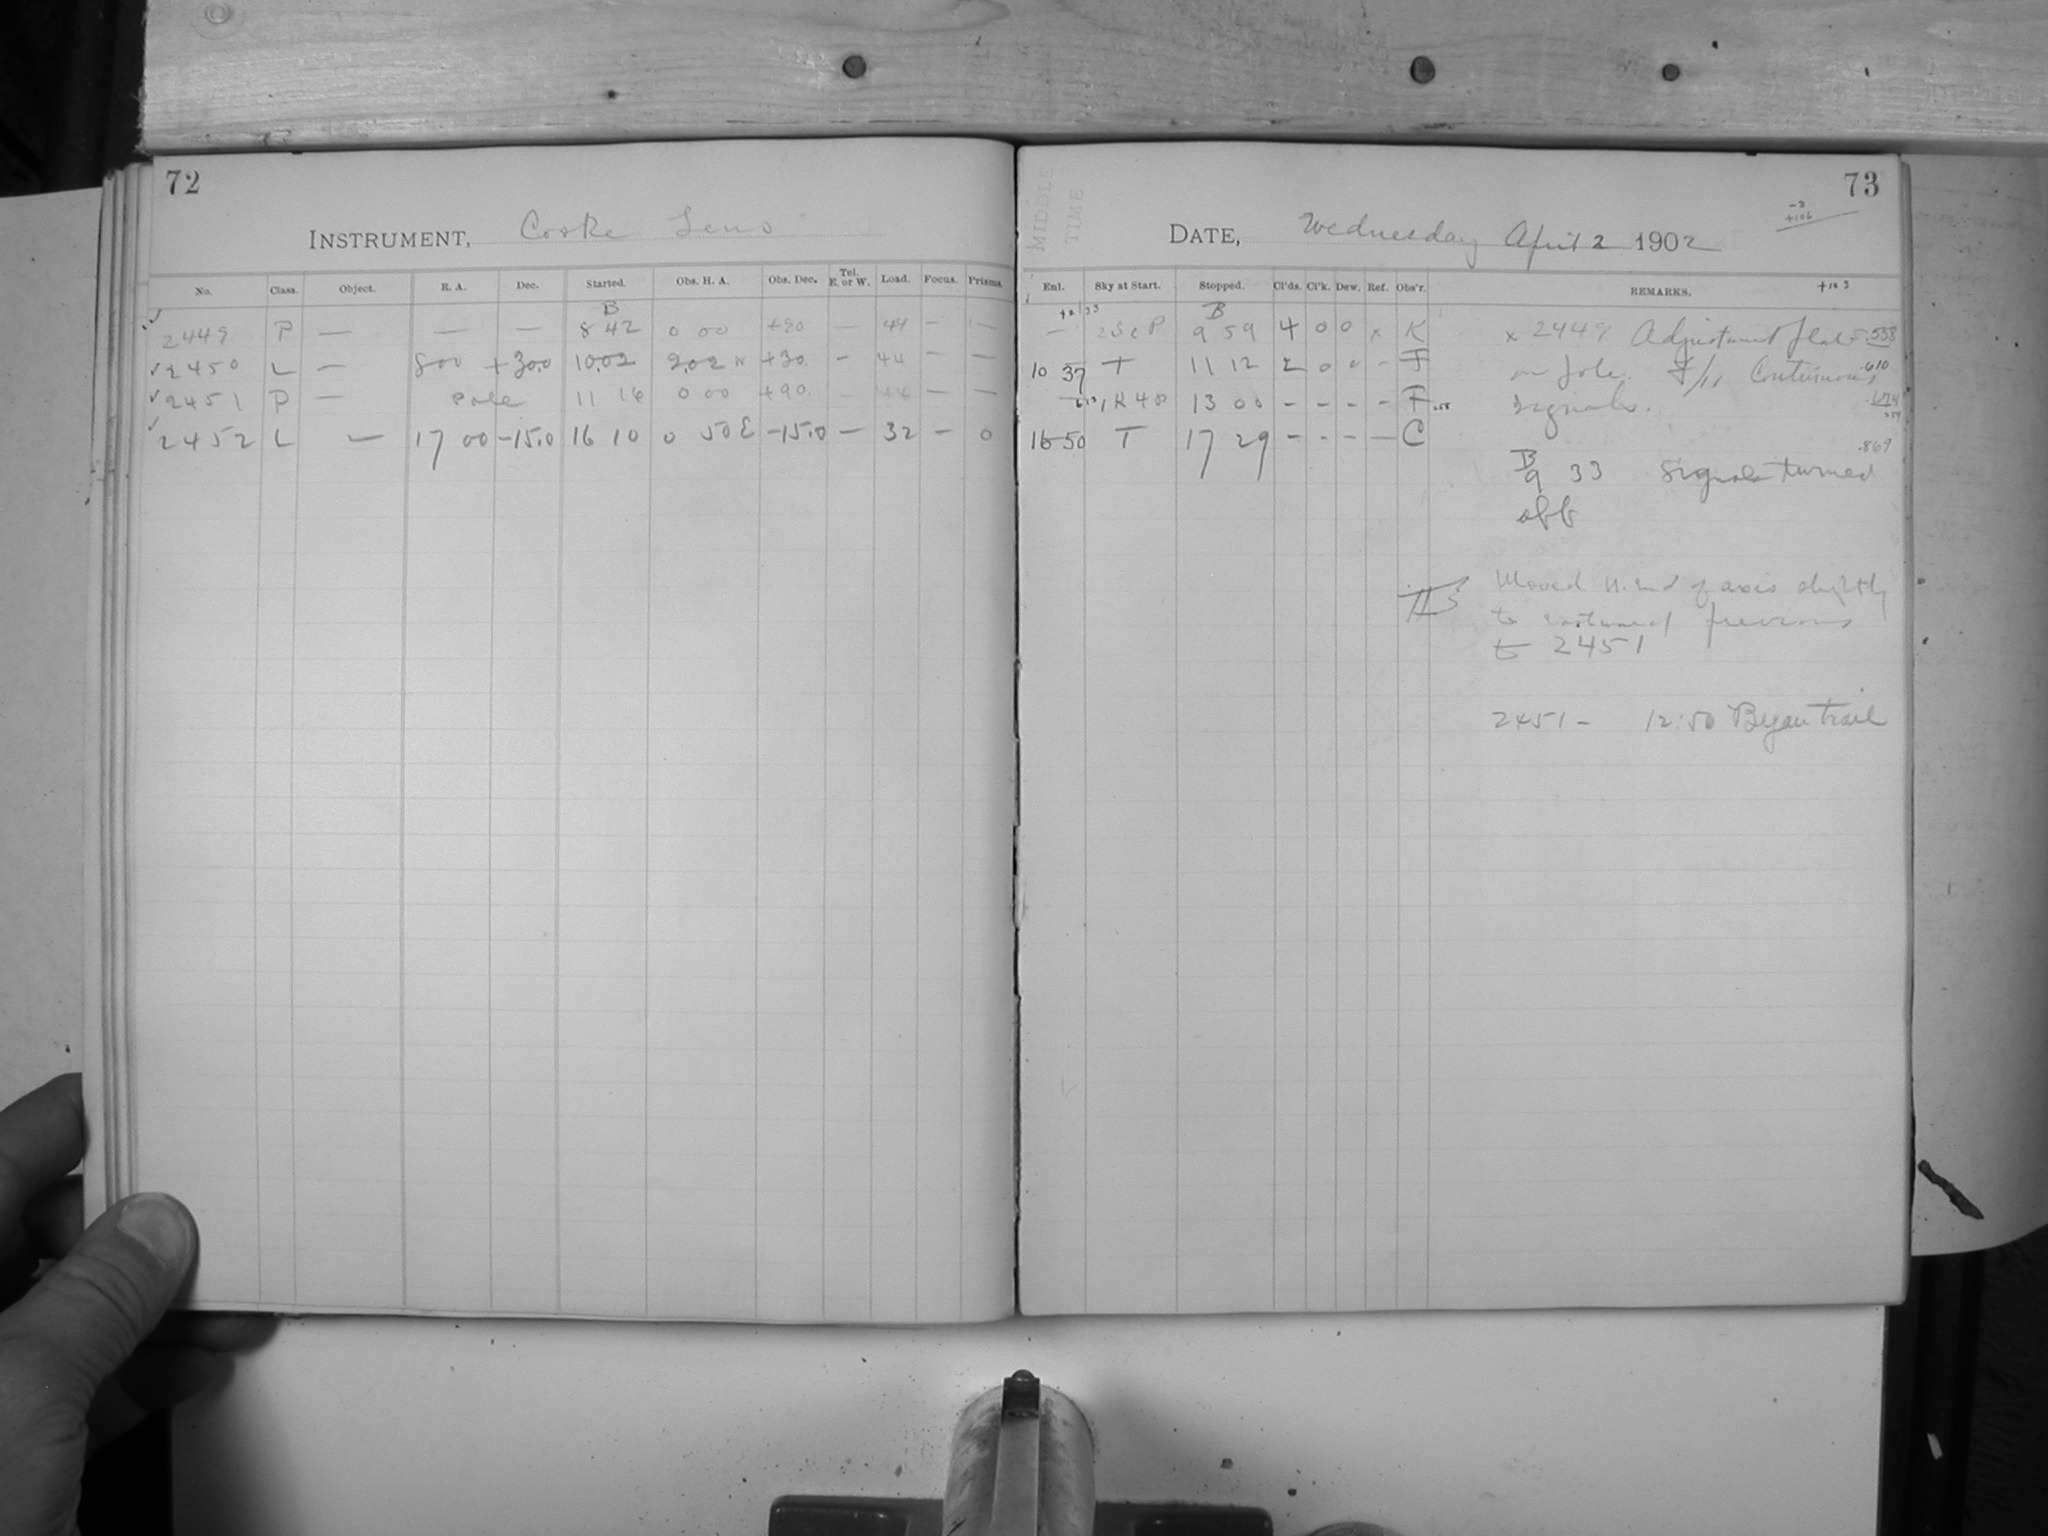 72
INSTRUMENT, Cooke Lens
No. Class. Object. R. A. Dec. Started. Obs. H. A. Obs. Dec. Tel. E. or W. Load. Focus. Prisms.
B
2449 P — — — 8 42 0 00 +90 — 44 — —
2450 L — 8 00 +30.0 10.02 2.02 W +30. — 44 — —
2451 P — Pole 11 16 0 00 +90. — 44 — —
2452 L — 17 00 -15.0 16 10 0 50 E -15.0 — 32 — 0
73
MIDDLE TIME
-3
+106
DATE, Wednesday April 2 1902
Enl. Sky at Start. Stopped. Cl'ds. Cl'k. Dew. Ref. Obs'r. REMARKS. +103
B
— 9 59 4 0 0 x K
10 37 T 11 12 2 0 0 - F
— 1 R 40 13 00 - - - - F
16 50 T 17 29 - - - - C
x 2449 Adjustment plate .558
on Pole. Continuous .610
signals.
.869
B
9 33 Signals turned
off
Moved N. end of axis slightly
to eastward previous
to 2451
2451 - 12:50 Began trail